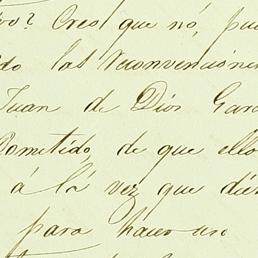 vo? Creo que nó, pue
do las reconvenciones
Juan de Dios Garc
Cometido, de que ello
á lá vez que dié
para hacer uso